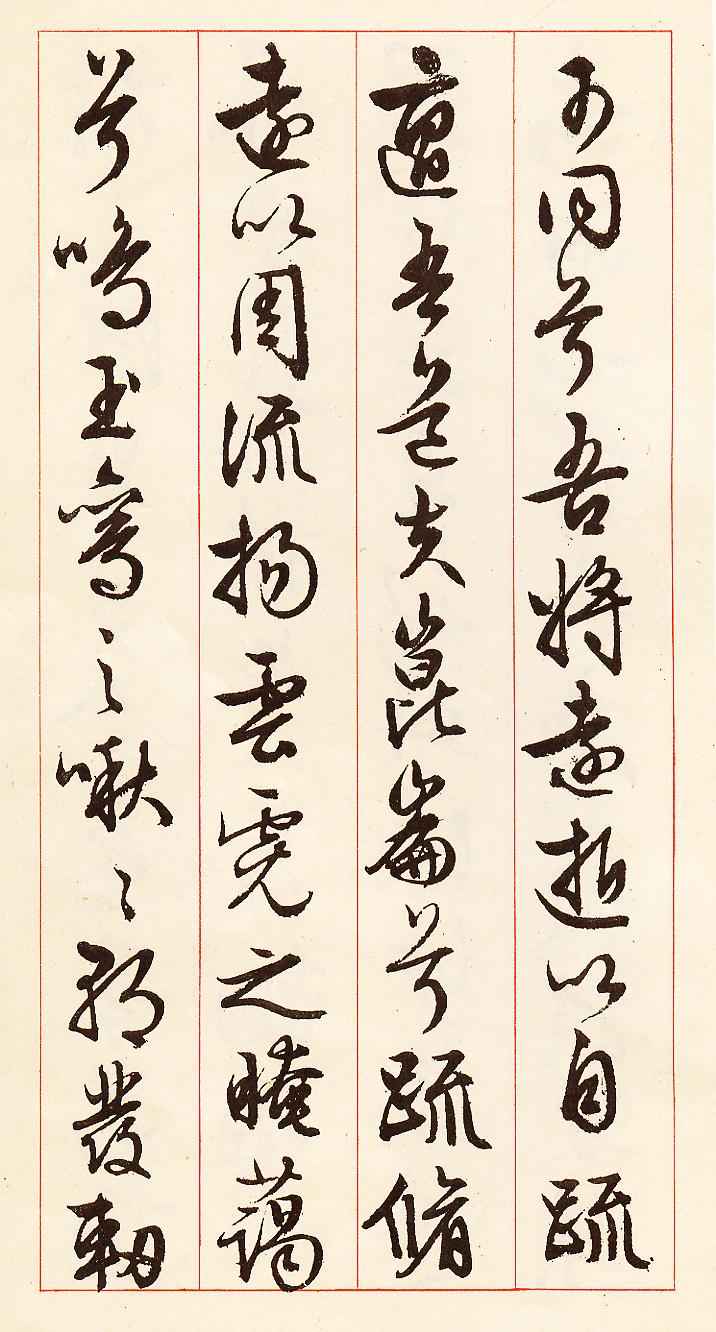 可同兮吾将遠逝以自疏
邅吾道夫崑崙兮路脩
遠以周流揚雲霓之晻藹
兮鳴玉鸞之啾〻朝發軔